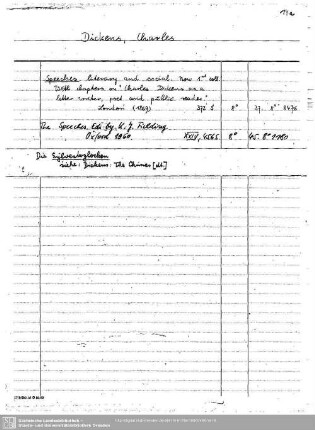 Dickens, Charles
Speeches literary and social. Now 1st coll.
With chapters on "Charles Dickens as a
letter writer, poet and public reader."
London (1869) 372 S 8° 27. 8° 8478
The Speeches. Ed. by K. J. Fielding.
Oxford 1960. XXIV, 456 S. 8° 45. 8° 7180
Die Sylvesterglocken
siehe: Dickens: The Chimes [dt.]